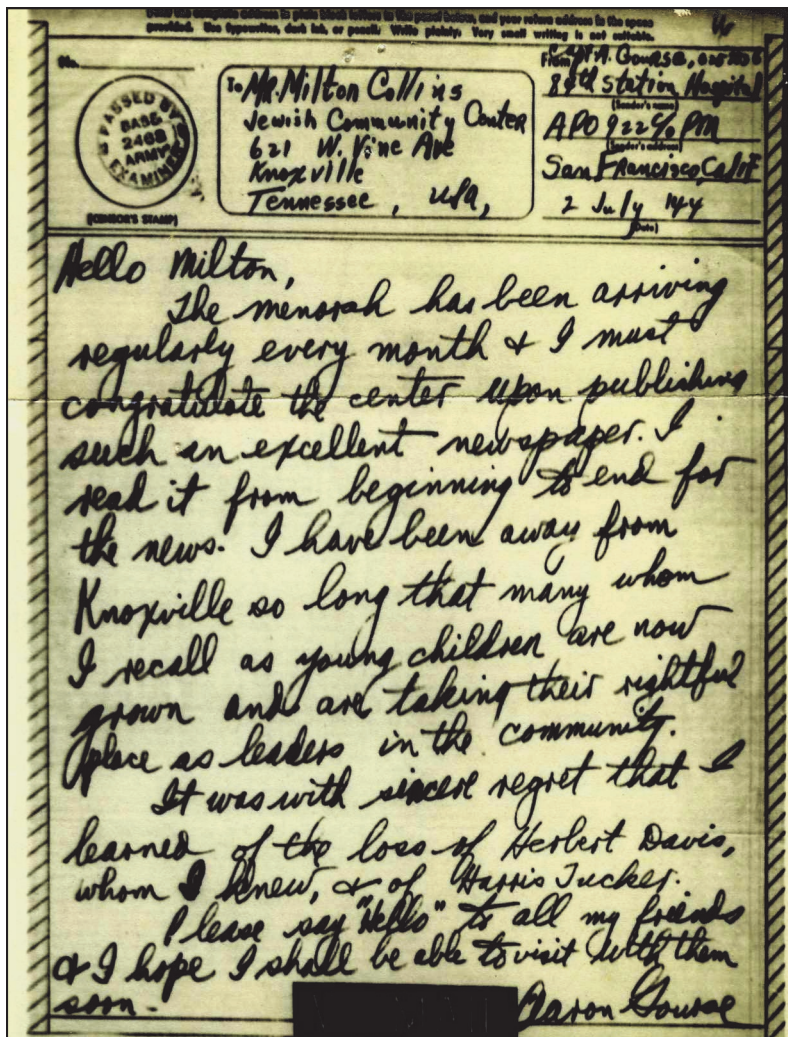 Print the complete address in plain block letters in the panel below, and your return address in the space
provided. Use typewriter, dark ink, or pencil. Write plainly. Very small writing is not suitable.
No.
PASSED BY
BASE
2468
ARMY
EXAMINER
(CENSOR'S STAMP)
To Mr. Milton Collins
Jewish Community Center
621 W. Vine Ave
Knoxville
Tennessee, USA,
From Capt A. Gourse,
89th Station Hospital
(Sender's name)
APO 922 c/o PM
(Sender's address)
San Francisco, Calif
2 July 144
(Date)
Hello Milton,
The menorah has been arriving
regularly every month & I must
congratulate the center upon publishing
such an excellent newspaper. I
read it from beginning to end for
the news. I have been away from
Knoxville so long that many whom
I recall as young children are now
grown and are taking their rightful
place as leaders in the community.
It was with sincere regret that I
learned of the loss of Herbert Davis,
whom I knew, & of Harris Tucker.
Please say "Hello" to all my friends
& I hope I shall be able to visit with them
soon.
Aaron Gourse